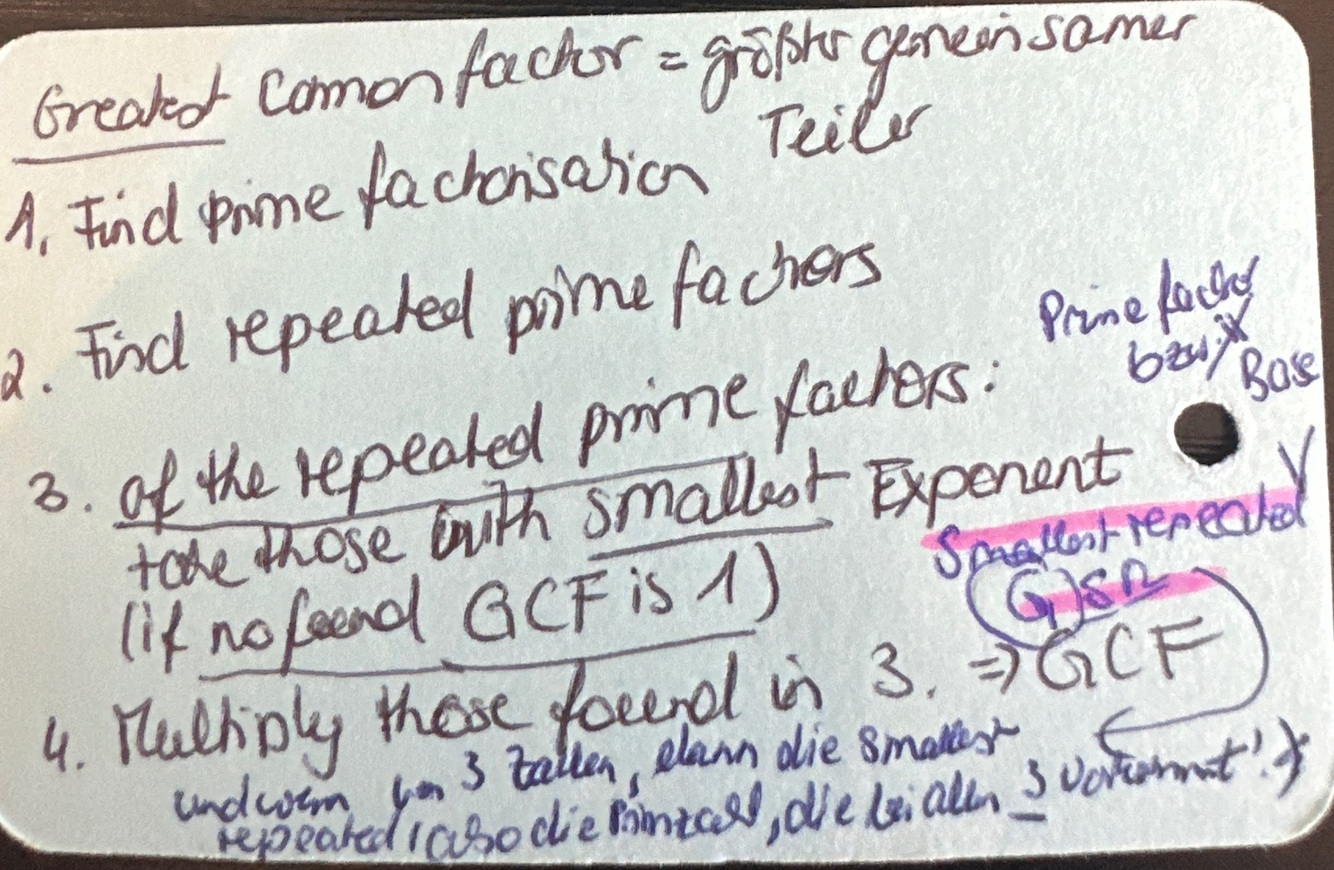 Greatest Common factor = größter gemeinsamer
Teiler
1. Find prime factorisation
2. Find repeated prime factors
Prime factor
bzw.
Base
3. of the repeated prime factors:
take those with smallest Exponent
Smallest repeated
(if no found GCF is 1)
(G)SR
4. Multiply those found in 3. => GCF
und wenn von 3 Zahlen, dann die smallest
repeated (also die Primzahl, die bei allen 3 vorkommt!)